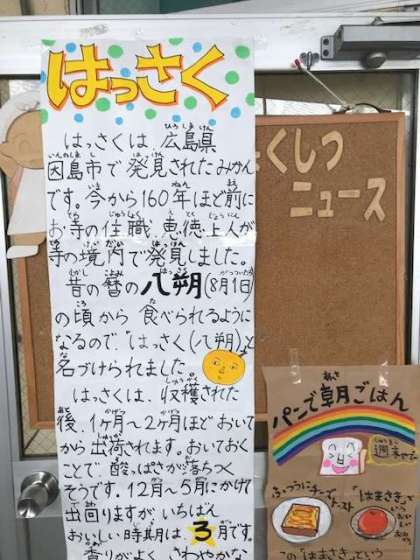 はっさく
はっさくは、広島県
因島市で発見されたみかん
です。今から160年ほど前に
お寺の住職、恵徳上人が
寺の境内で発見しました。
昔の暦の八朔(8月1日)
の頃から食べられるように
なるので、「はっさく(八朔)と
名づけられました。
はっさくは、収穫された
後、1ヶ月～2ヶ月ほどおいて
から出荷されます。おいておく
ことで、酸っぱさが落ちつく
そうです。12月～5月にかけて
出回りますがいちばん
おいしい時期は3月です。
香りがよく、さわやかな
くしつ
ニュース
パンで朝ごはん